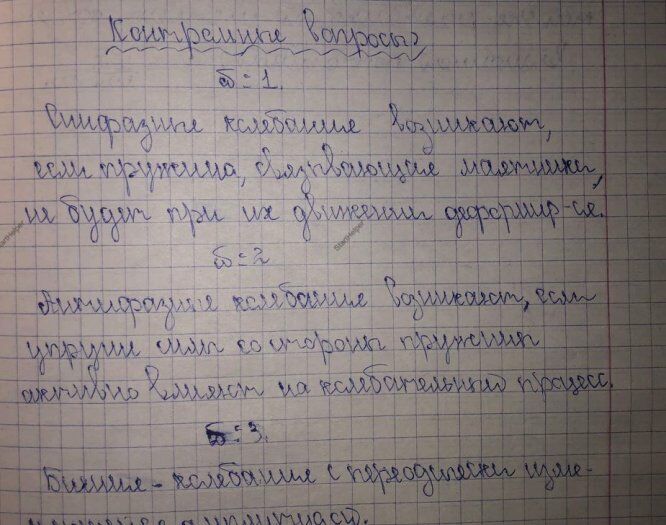 Контрольные вопросы
№ 1.
Синфазные колебания возникают,
если пружина, связывающие маятники,
не будет при их движении деформир-ся.
№ 2
Антифазные колебания возникают, если
упругие силы со стороны пружины
активно влияют на колебательный процесс.
№ 3.
Биения - колебания с периодически изме-
StartHelper
StartHelper